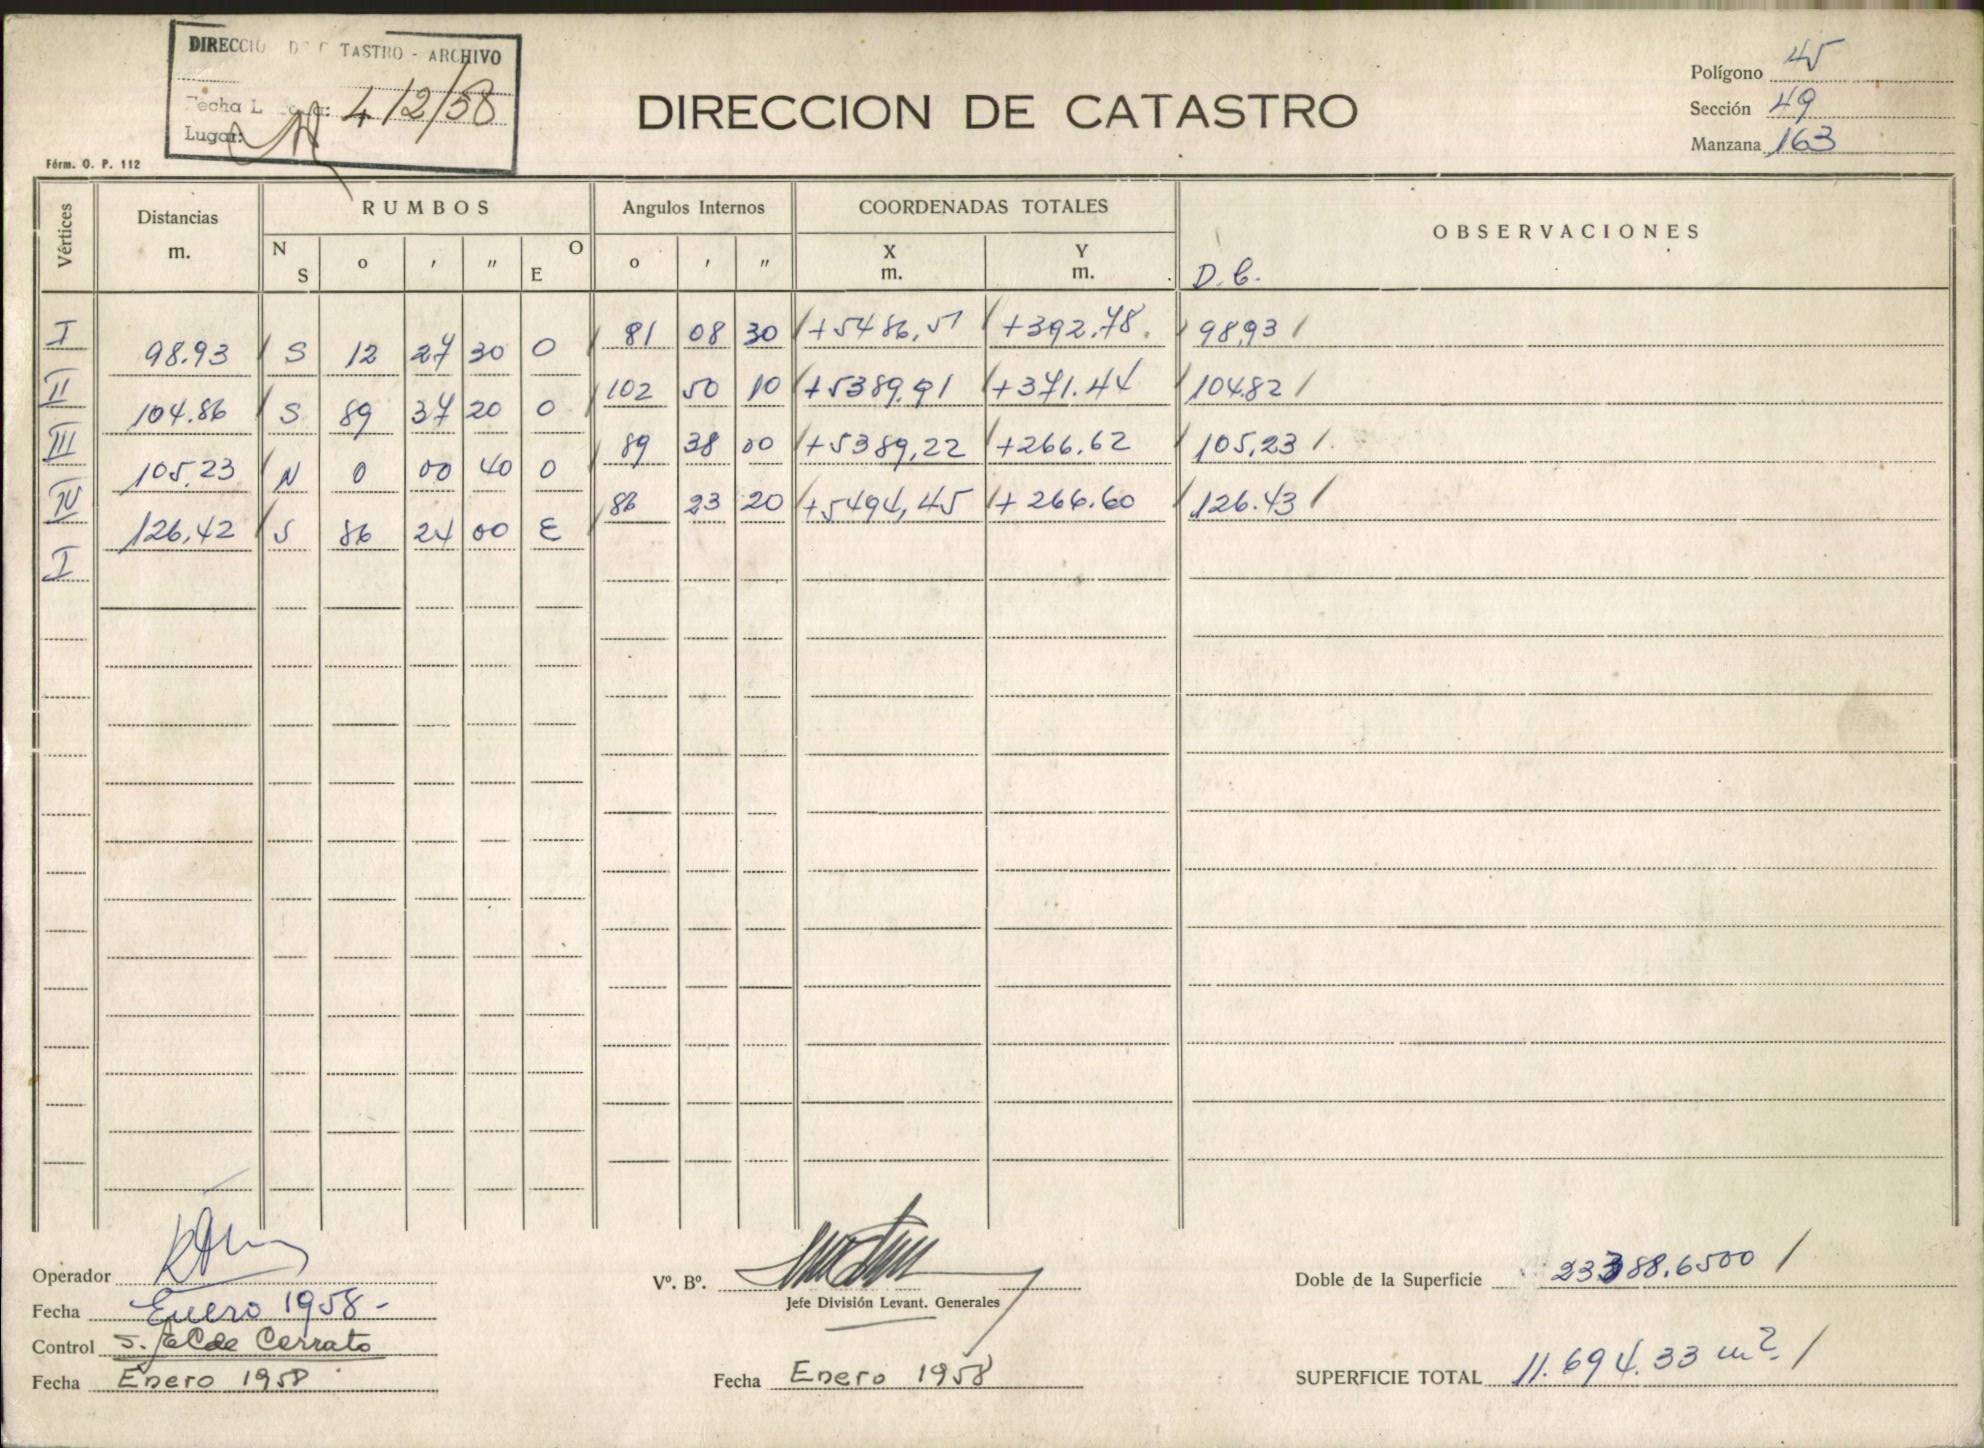 DIRECCIO D C TASTRO - ARCHIVO
Fecha 4/2/58
Lugar:
Fórm. O. P. 112
DIRECCION DE CATASTRO
Polígono 45
Sección 49
Manzana 163
Vértices Distancias m. RUMBOS Angulos Internos COORDENADAS TOTALES OBSERVACIONES
N S o ' " O E o ' " X m. Y m. D. C.
I 81 08 30 +5486,51 +392.78. 98,93
98.93 S 12 27 30 O
II 102 50 10 +5389,91 +371.44 104.82
104.86 S 89 37 20 O
III 89 38 00 +5389,22 +266.62 105,23
105,23 N 0 00 40 O
IV 86 23 20 +5494,45 +266.60 126.43
126,42 S 86 24 00 E
I
Operador
Fecha Enero 1958-
Control Cerrato
Fecha Enero 1958
Vº. Bº.
Jefe División Levant. Generales
Fecha Enero 1958
Doble de la Superficie 23388.6500
SUPERFICIE TOTAL 11.694.33 m².